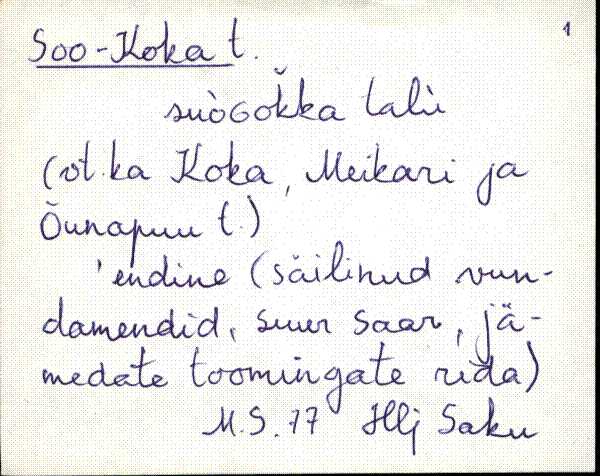 1
Soo-Koka t.
suòGok̆ka talù
(vt. ka Koka, Meikari ja
Õunapuu t.)
'endine (säilinud vun-
damendid, suur saar, jä-
medate toomingate rida)
M.S. 77 Hlj Saku